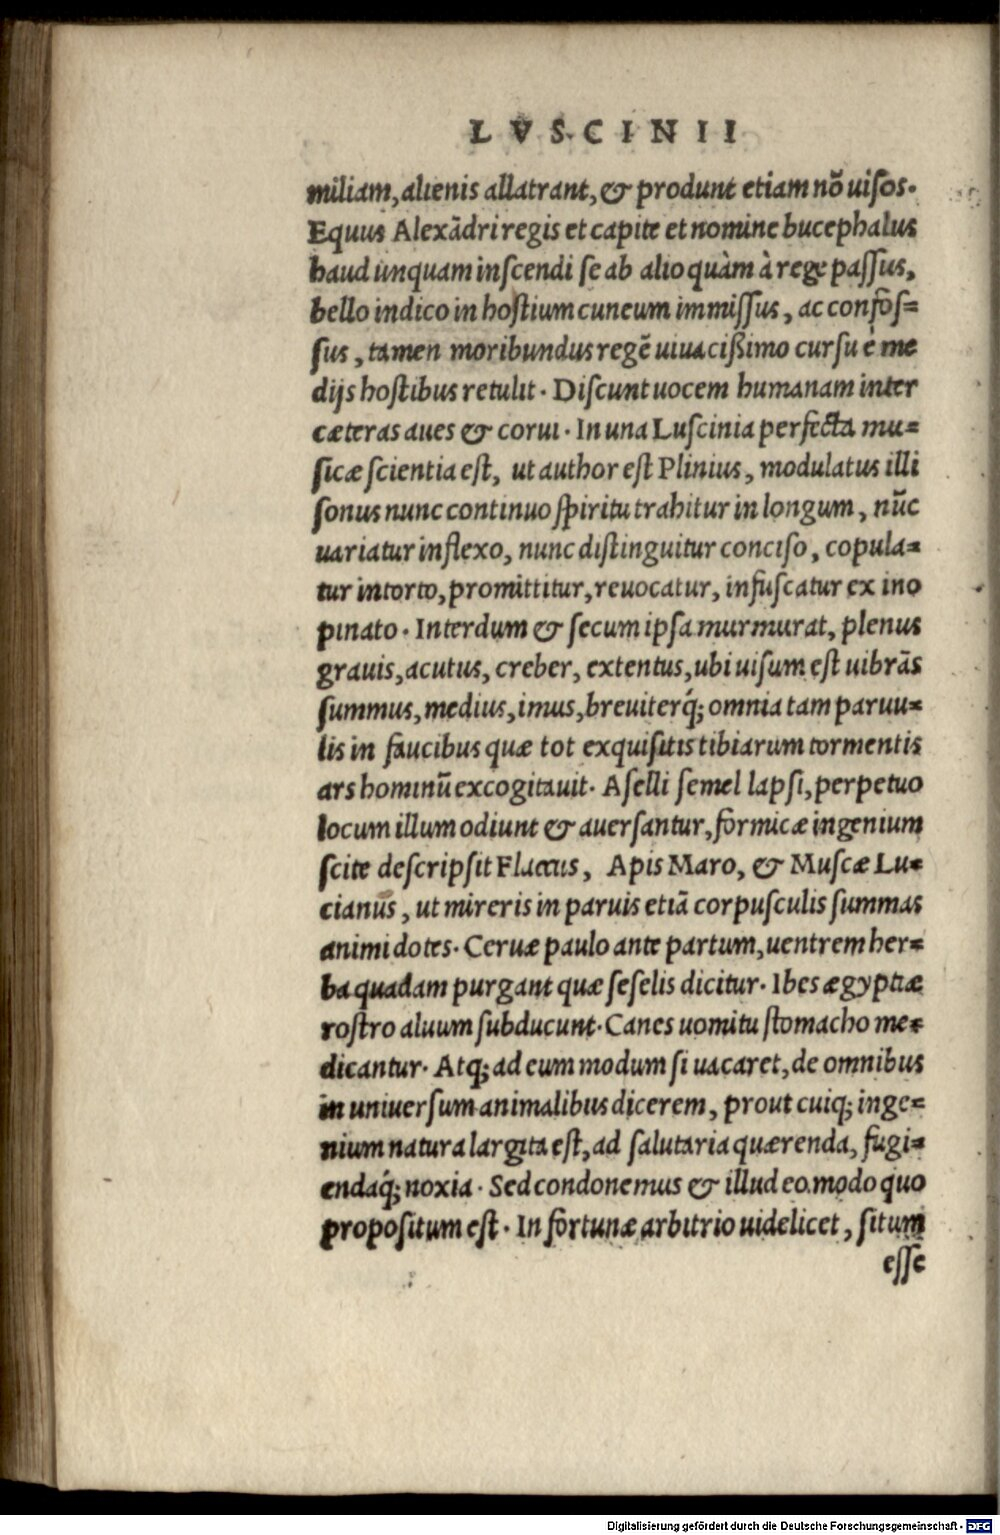 LVSCINII
miliam, alienis allatrant, & produnt etiam nõ uiſos.
Equus Alexãdri regis et capite et nomine bucephalus
haud unquam inſcendi ſe ab alio quàm à rege paſſus,
bello indico in hoſtium cuneum immiſſus, ac confoſ=
ſus, tamen moribundus regẽ uiuacißimo curſu è me
dijs hoſtibus retulit. Diſcunt uocem humanam inter
cæteras aues & corui. In una Luſcinia perfecta mu=
ſicæ ſcientia eſt, ut author eſt Plinius, modulatus illi
ſonus nunc continuo ſpiritu trahitur in longum, nũc
uariatur inflexo, nunc diſtinguitur conciſo, copula=
tur intorto, promittitur, reuocatur, infuſcatur ex ino
pinato. Interdum & ſecum ipſa murmurat, plenus
grauis, acutus, creber, extentus, ubi uiſum eſt uibrãs
ſummus, medius, imus, breuiterq́; omnia tam paruu=
lis in faucibus quæ tot exquiſitis tibiarum tormentis
ars hominũ excogitauit. Aſelli ſemel lapſi, perpetuo
locum illum odiunt & auerſantur, formicæ ingenium
ſcite deſcripſit Flaccus, Apis Maro, & Muſcæ Lu=
cianus, ut mireris in paruis etiã corpuſculis ſummas
animi dotes. Ceruæ paulo ante partum, uentrem her=
ba quadam purgant quæ ſeſelis dicitur. Ibes ægyptiæ
roſtro aluum ſubducunt. Canes uomitu ſtomacho me=
dicantur. Atq; ad eum modum ſi uacaret, de omnibus
in uniuerſum animalibus dicerem, prout cuiq; inge=
nium natura largita eſt, ad ſalutaria quærenda, fugi=
endaq́; noxia. Sed condonemus & illud eo modo quo
propoſitum eſt. In fortunæ arbitrio uidelicet, ſitum
eſſe
Digitalisierung gefördert durch die Deutsche Forschungsgemeinschaft - DFG